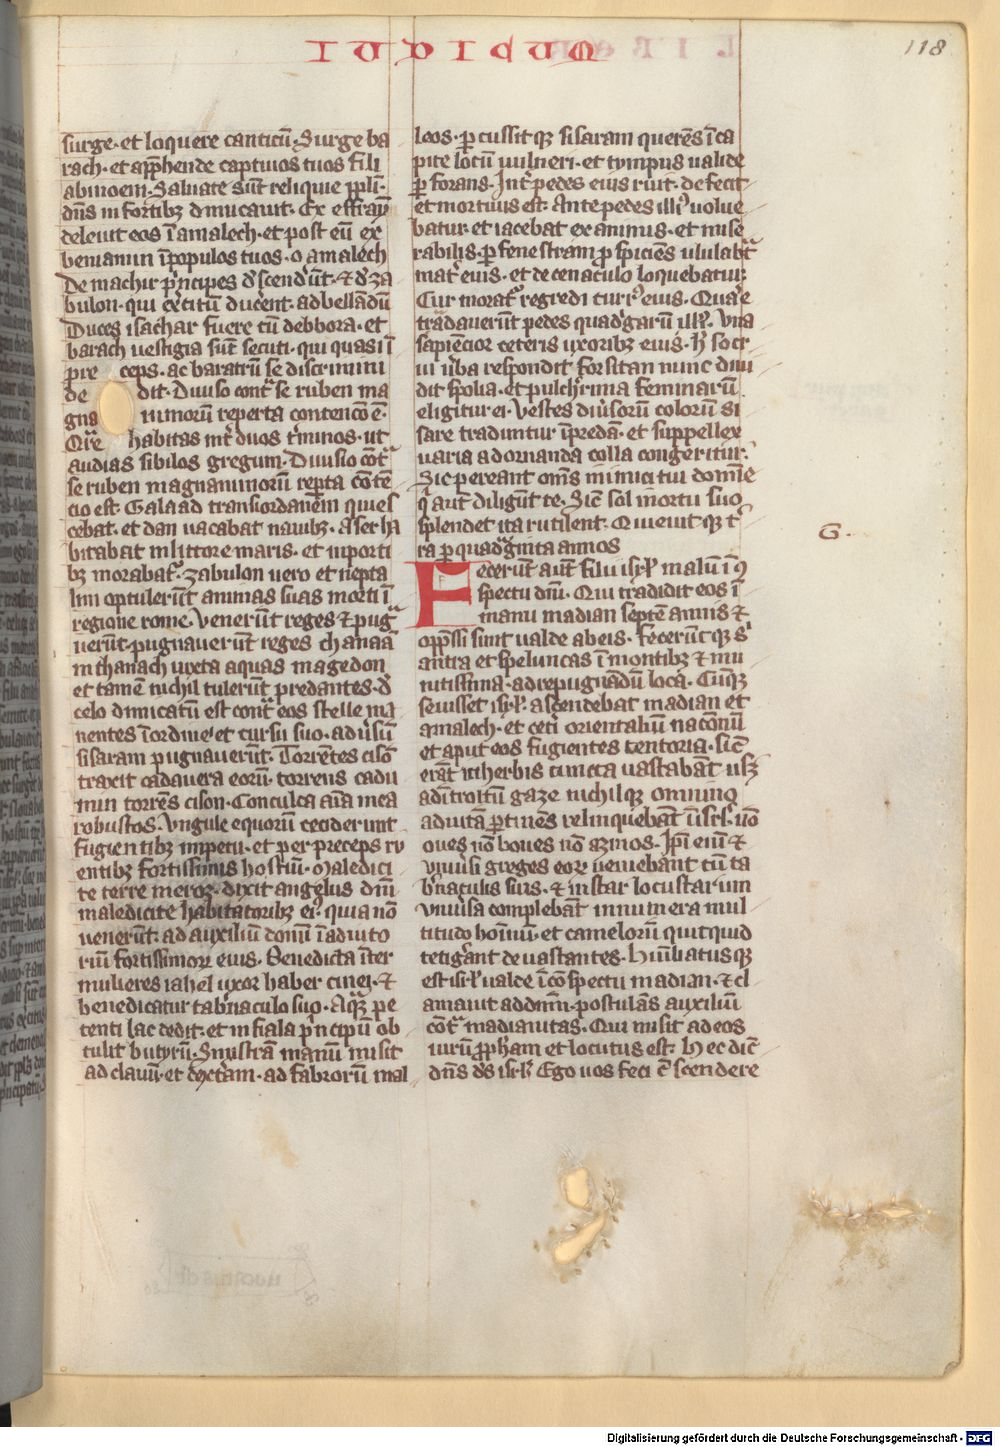 IUDICUM
118
surge· et loquere canticū· Surge ba
rach· et app̄hende captiuos tuos fili
abinoem· Saluate sūt reliquie ppl̄i·
dn̄s in fortibꝫ dimicauit· Ex effraȳ
deleuit eos ī amalech· et post eū ex
beniamin ī populos tuos· o amalech
De machir pͥncipes dˀscendˀūt· ⁊ dˀ za
bulon· qui exˀcitū ducent· ad bellādū
Duces isachar fuere cū debbora· et
barach uestigia sūt secuti· qui quasi ī
pre ceps· ac baratrū se discrimini
de dit· Diuiso contͣ se ruben ma
gna nimorū reperta contencō ē·
Qͣre habitas intˀ duos tˀminos· ut
audias sibilos gregum· Diuisio cōtͣ
se ruben magnanimorū repta cōtē
cio est· Galaad transiordanem quies
cebat· et dan uacabat nauibꝫ· Aser ha
bitabat in littore maris· et in porti
bꝫ morabatˀ· Zabulon uero et nepta
lim optulerūt animas suas morti ī
regione rome· Venerūt reges ⁊ pugͣ
uerūt· pugnauerūt reges chanaā
in thanach iuxta aquas magedon
et tamē nichil tulerūt predantes· dˀ
celo dimicatū est contͣ eos stelle ma
nentes ī ordine et cursu suo· aduˀsū
sisaram pugnauerūt· Torrētes cisō
traxit cadauera eorū· torrens cadu
min torrēs cison· Conculca aīa mea
robustos· Vngule equorū ceciderunt
fugientibꝫ impetu· et per preceps ru
entibꝫ fortissimis hostiū· Maledici
te terre meroꝫ· dixit angelus dn̄i
maledicite habitatoribꝫ eiˀ· quia nō
uenerūt· ad auxiliū domī ī adiuto
riū fortissimoꝝ eius· Benedicta īter
mulieres iahel uxor haber cinei· ⁊
benedicatur tabˀnaculo suo· Aquā pe
tenti lac dedit· et in fiala pͥncipū ob
tulit butyrū· Sinistrā manū misit
ad clauū· et dextam· ad fabrorū mal
leos· ꝑcussit qꝫ sisaram querēs ī ca
pite locū uulneri· et tympus ualide
ꝑforans· Intˀ pedes eius ruit· defecit
et mortuus est· Ante pedes illiˀ uolue
batur· et iacebat exanimus· et mise
rabilis· ꝑ fenestram ꝓspiciēs ululabͣt
matˀ eius· et de cenaculo loquebatur·
Cur moratˀ regredi curˀ eius· Quaͬe
tͣdauerūt pedes quadˀgarū illiˀ· Vna
sapiencior ceteris uxoribꝫ eius· hˀ socr
ui uˀba respondit· Forsitan nunc diui
dit spolia· et pulchˀrima feminarū
eligitur ei· Vestes diuˀsorū colorū si
sare traduntur ī predā· et suppellex
uaria ad ornanda colla congeritur·
Sic pereant om̄s inimici tui domīe
qͥ aut̄ diligūt te· Sic̄ sol in ortu suo
splendet ita rutilent· Quieuit qꝫ tˀ
ra ꝑ quadͣginta annos
Fecerūt aut̄ filii isrl̄ malū ī ꝯ
spectu dn̄i· Qui tradidit eos ī
manu madian septē annis ⁊
opp̄ssi sunt ualde ab eis· Fecerūt qꝫ sˀ
antra et speluncas ī montibꝫ ⁊ mu
nitissima· ad repugnādū loca· Cūqꝫ
seuisset isrl̄· ascendebat madian et
amalech· et cetˀi orientaliū nacōnū
et aput eos figentes tentoria· sic̄
erāt ī herbis cuncta uastabāt· usqꝫ
ad ītroitū gaze nichil qꝫ omnino
ad uitā ꝑtinēs relinquebāt ī isrl̄· nō
oues nō boues nō azinos· Ip̄i eniˀ ⁊
vniuˀsi greges eoꝝ ueniebant cū ta
bˀnaculis suis· ⁊ instar locustarum
vniuˀsa complebāt innumera mul
titudo hoīnum· et camelorū quitquid
tetigˀant deuastantes· Humībatus qꝫ
est isrl̄ ualde ī cōspectu madian· ⁊ cl
amauit ad dn̄m· postulās auxiliū
cōtͣ madianitas· Qui misit ad eos
uirū ꝓph̄am et locutus est· Hec dic̄
dn̄s dˀs isrl̄· Ego uos feci cōscendere
G·
Digitalisierung gefördert durch die Deutsche Forschungsgemeinschaft - DFG